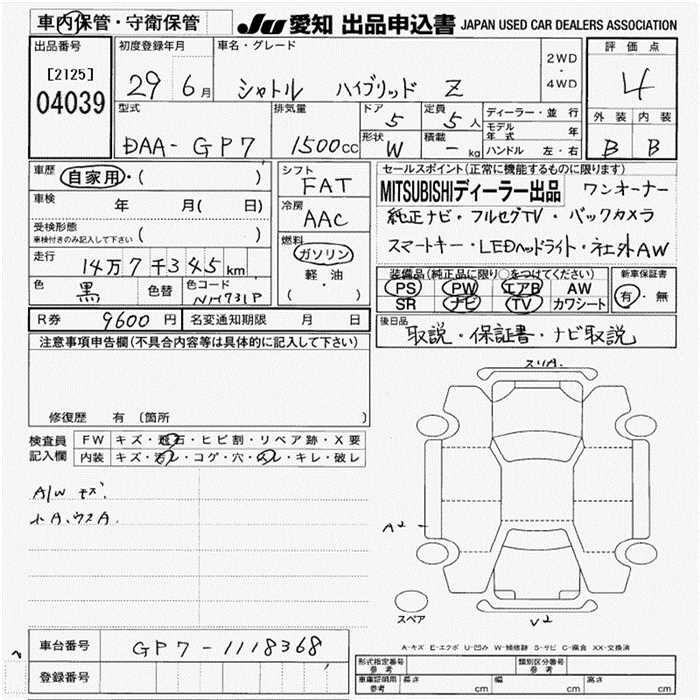 車内保管・守衛保管
JU 愛知 出品申込書 JAPAN USED CAR DEALERS ASSOCIATION
出品番号
[2125]
04039
初度登録年月
29 6月
車名・グレード
シャトル ハイブリッド Z
2WD
・
4WD
評価点
4
外装 内装
B B
型式
DAA-GP7
排気量
1500cc
ドア
5
定員
5人
形状
W
積載
- kg
ディーラー・並行
モデル年式 年
ハンドル 左・右
車歴
自家用・( )
車検 年 月( 日)
受検形態
車検付きのみ記入して下さい ( )
走行
14万7千345km
色
黒
色替
色コード
NH731P
シフト
FAT
冷房
AAC
燃料
ガソリン
軽・油
( ・ )
セールスポイント(正常に機能するものに限ります)
MITSUBISHIディーラー出品 ワンオーナー
純正ナビ・フルセグTV・バックカメラ
スマートキー・LEDヘッドライト・社外AW
装備品(純正品に限り○をつけてください)
PS PW エアB AW
SR ナビ TV カワシート
新車保証書
有・無
後日品
取説・保証書・ナビ取説
R券 9600円 名変通知期限 月 日
注意事項申告欄(不具合内容等は具体的に記入して下さい)
修復歴 有 〔箇所
検査員
記入欄
FW キズ・飛石・ヒビ割・リペア跡・X要
内装 キズ・汚レ・コゲ・穴・スレ・キレ・破レ
A/W キズ.
小A.ウスA.
スリA.
A2
V2
スペア
A-キズ E-エクボ U-凹み W-補修跡 S-サビ C-腐食 XX-交換済
車台番号 GP7-1118368
登録番号
形式指定番号
参考
類別区分番号
参考
車庫証明用
参考
長さ cm 幅 cm 高さ cm